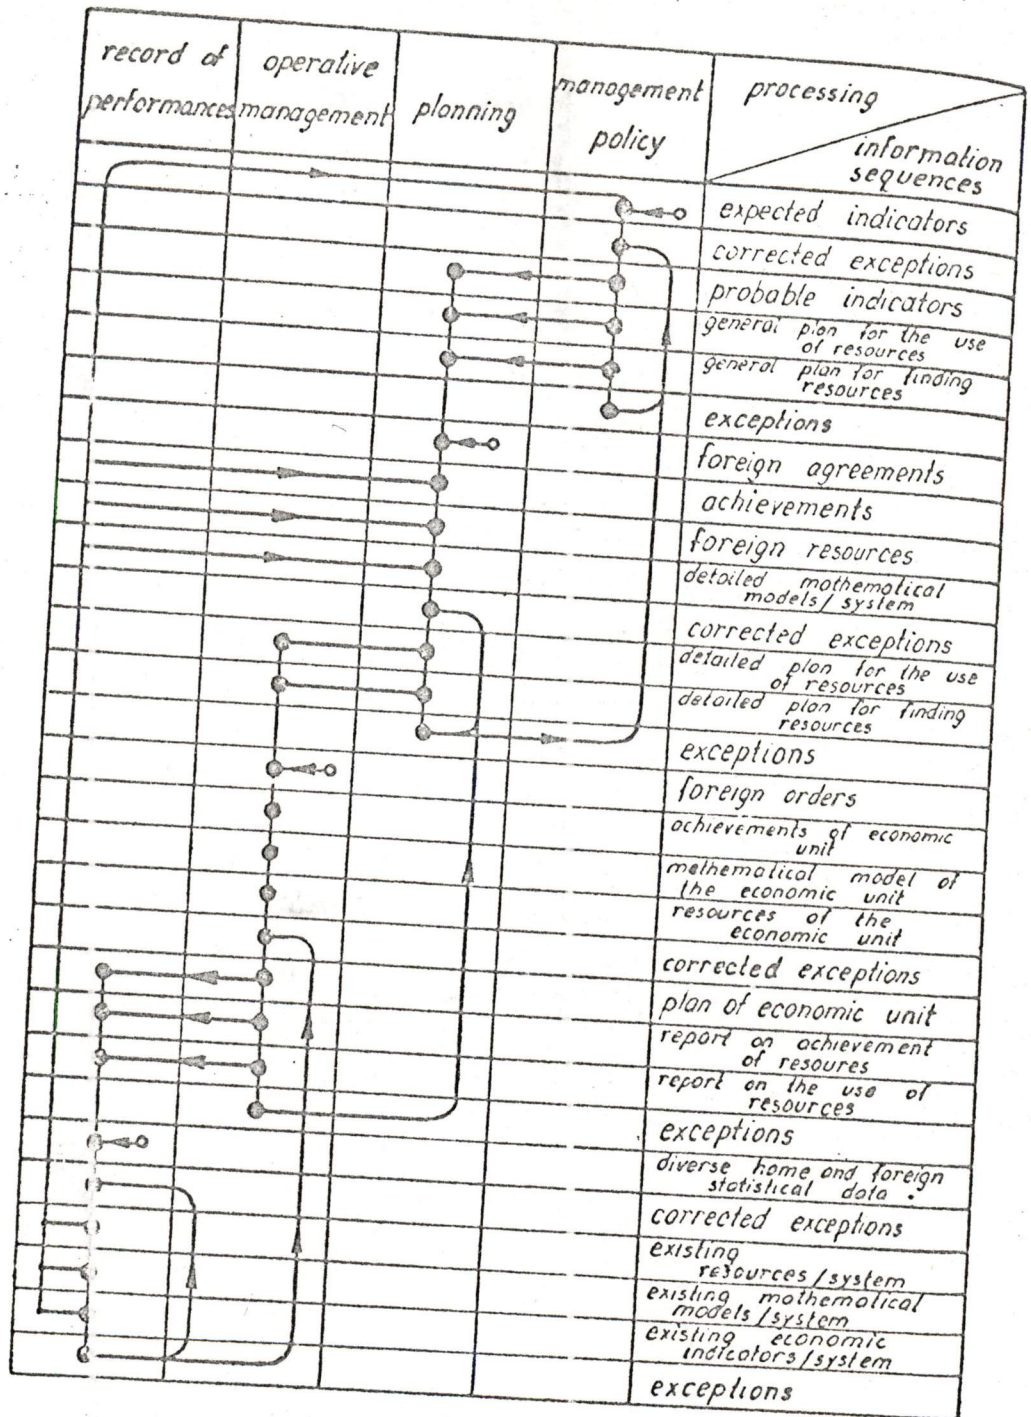 record of
performances
operative
management
planning
management
policy
processing
information
sequences
expected indicators
corrected exceptions
probable indicators
general plan for the use
of resources
general plan for finding
resources
exceptions
foreign agreements
achievements
foreign resources
detailed mathematical
models/system
corrected exceptions
detailed plan for the use
of resources
detailed plan for finding
resources
exceptions
foreign orders
achievements of economic
unit
mathematical model of
the economic unit
resources of the
economic unit
corrected exceptions
plan of economic unit
report on achievement
of resoures
report on the use of
resources
exceptions
diverse home and foreign
statistical data .
corrected exceptions
existing
resources/system
existing mathematical
models/system
existing economic
indicators/system
exceptions